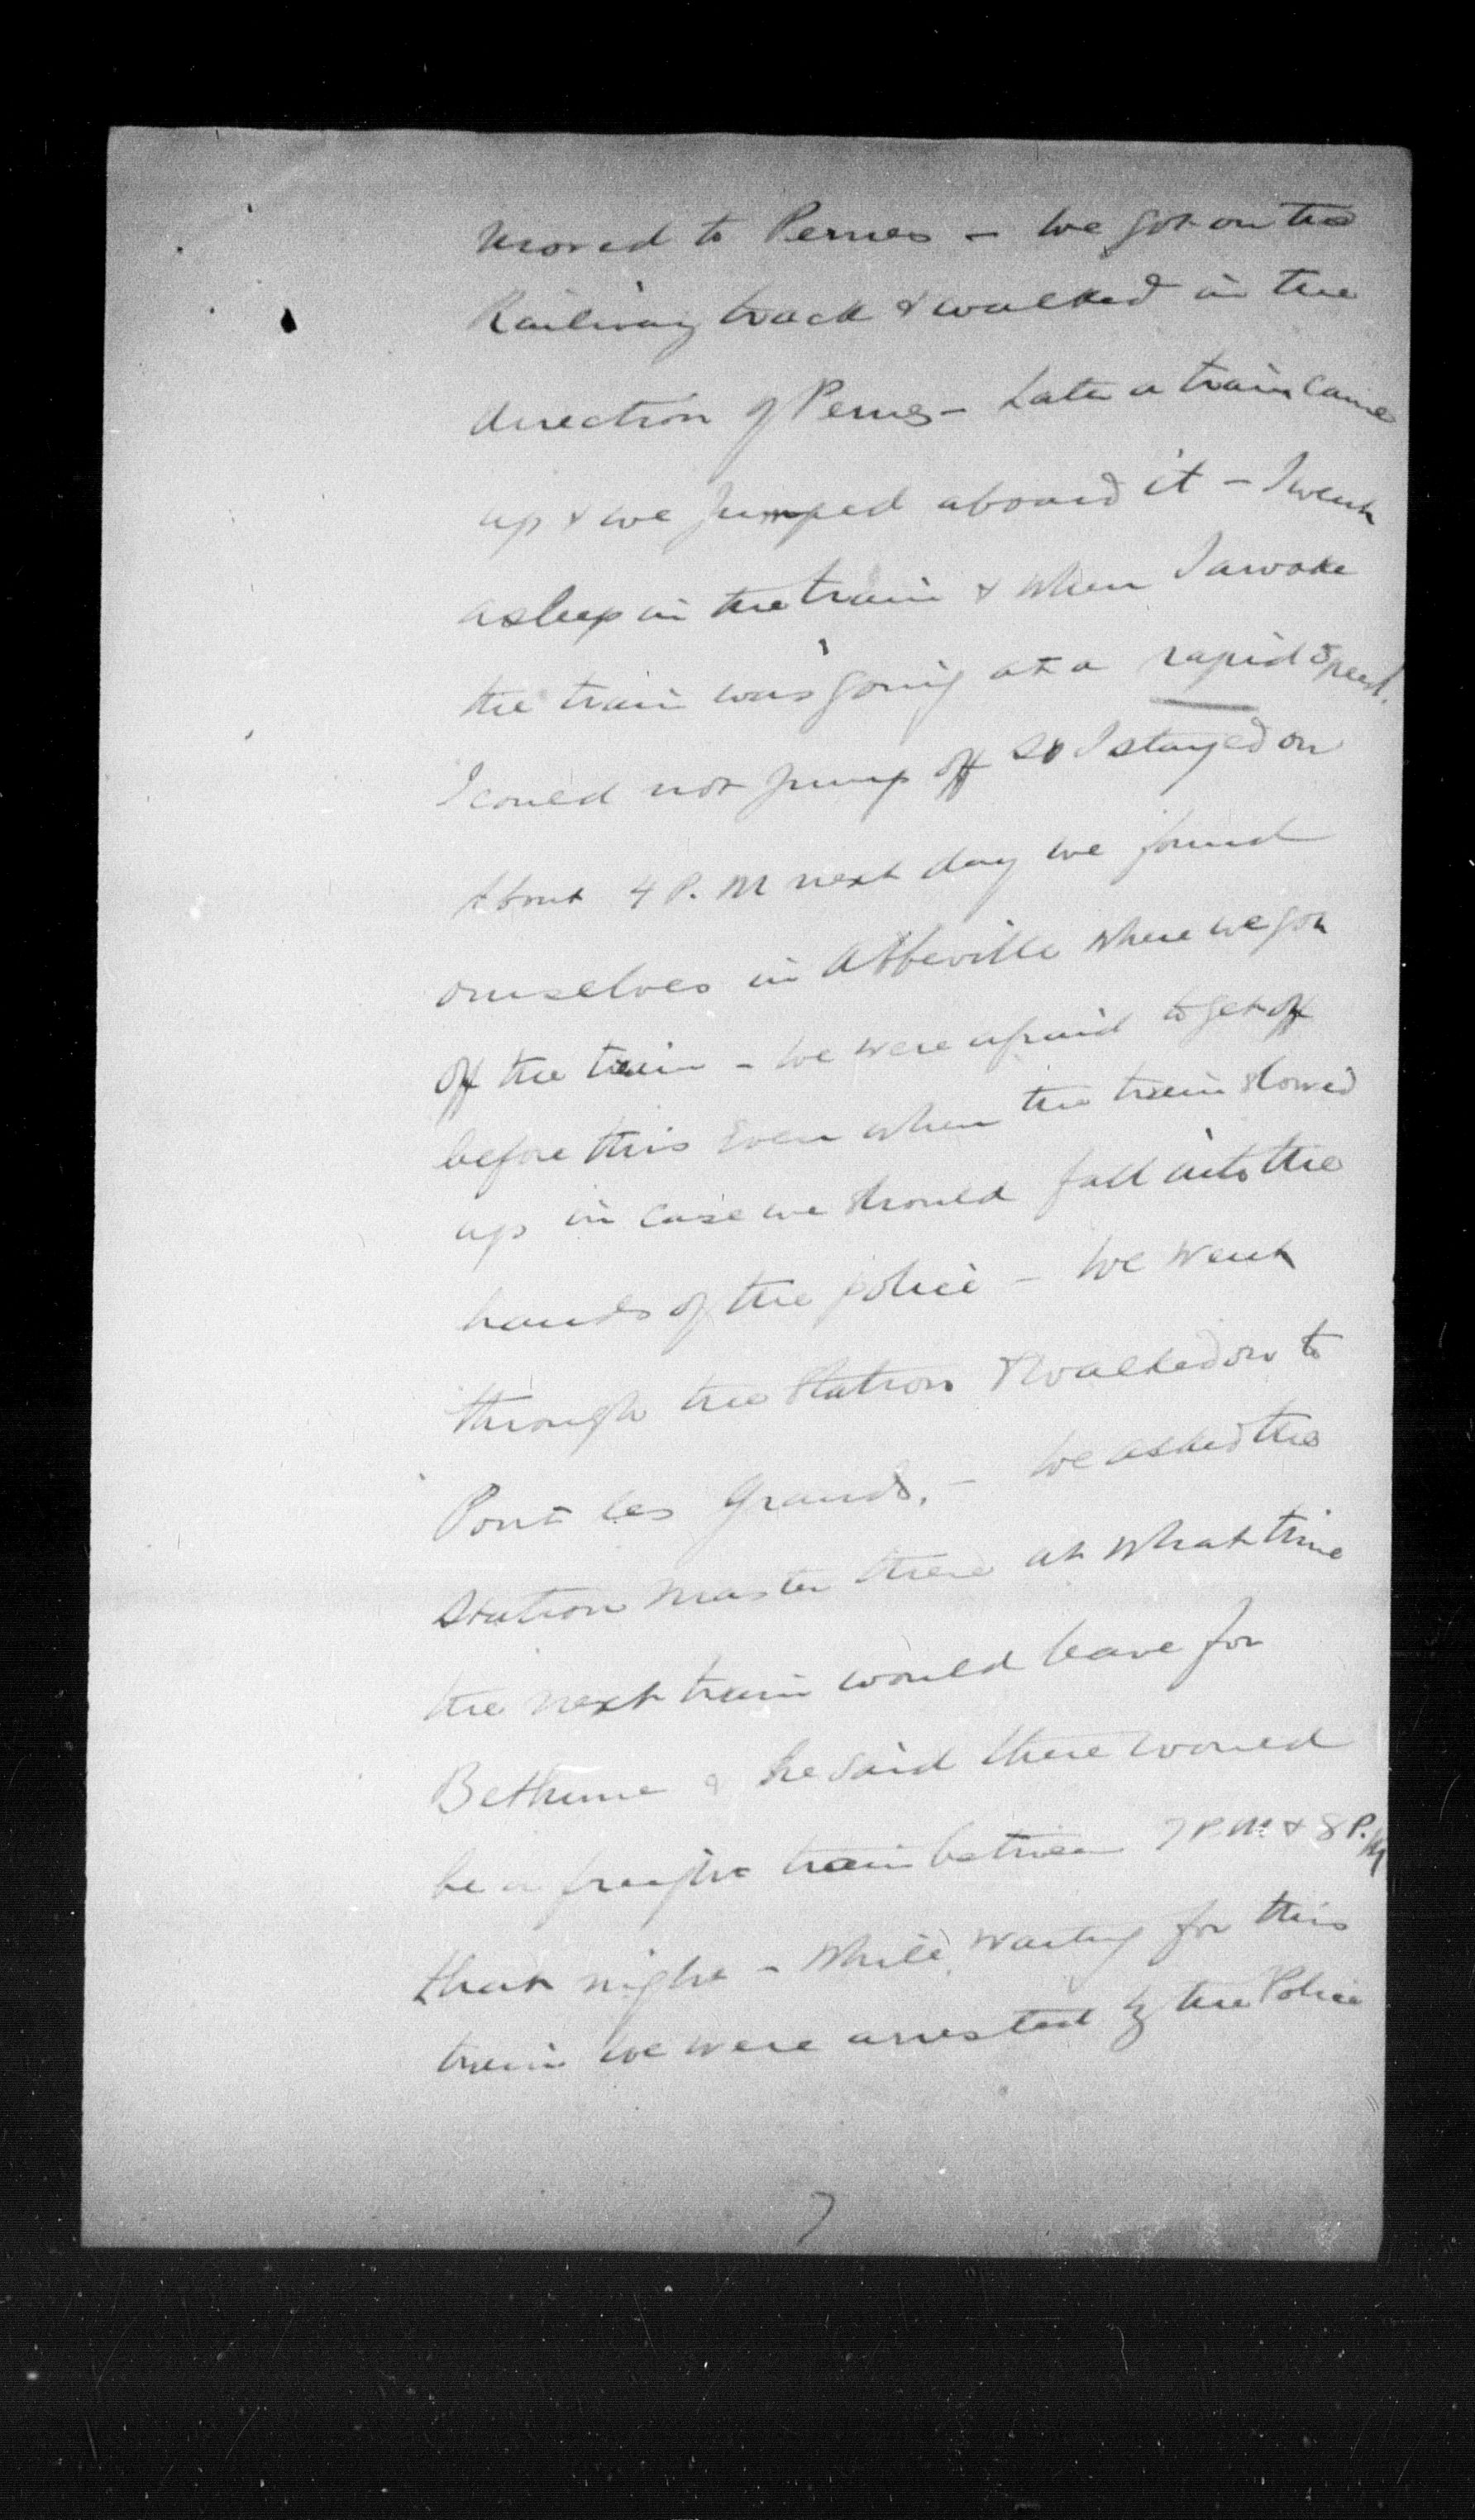 moved to Pernes – We got on the
Railway track & walked in the
direction of Pernes – Later a train came
up & we jumped aboard it – I went
asleep in the train & when I awoke
the train was going at a rapid speed.
I could not jump off so I stayed on
About 4 P.M next day we found
ourselves in Abbeville where we got
off the train – We were afraid to get off
before this even when the train slowed
up in case we should fall into the
hands of the police – We went
through the Station & walked on to
Pont les Grands. – We asked the
Station master there at what time
the next train would leave for
Bethune & he said there would
be a freight train between 7 P.M & 8 P.M
that night – While waiting for this
train we were arrested by the Police
7